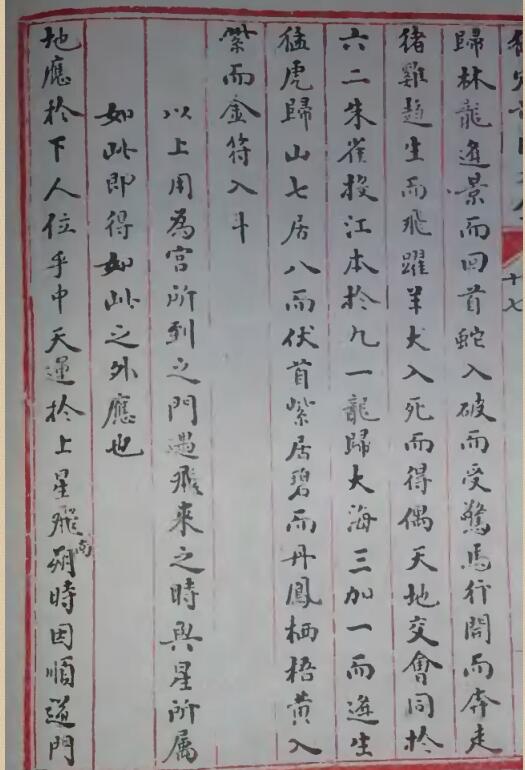 十七
歸林龍進景而回首蛇入破而受驚馬行開而奔走
猪雞趋生而飛躍羊犬入死而得偶天地交會同於
六二朱雀投江本於九一龍歸大海三加一而進生
猛虎歸山七居八而伏首紫居碧而丹鳳栖梧黄入
紫而金符入斗
以上用為宮所到之門遇飛來之時與星所属
如此即得如此之外應也
地應於下人位乎中天運於上星飛南朔時因順逆門